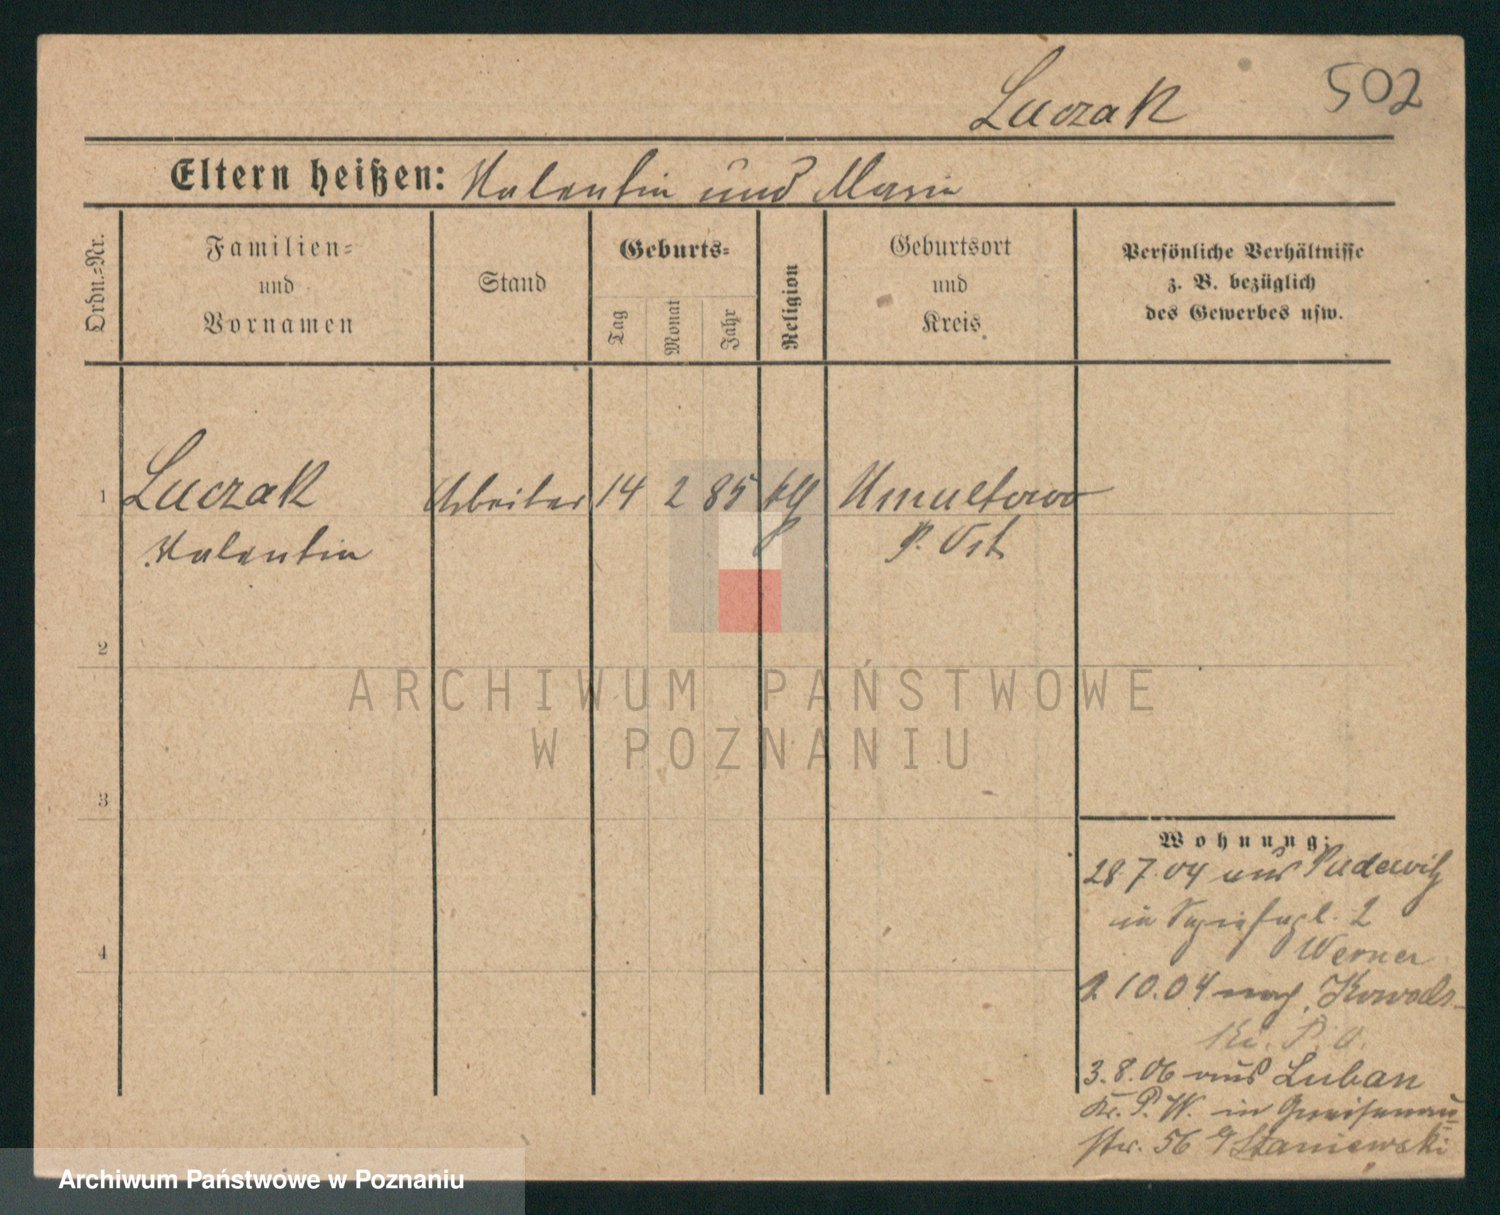 Luczak
502
Eltern heißen: Valentin und Marie
Ordn.=Nr.
Familien=
und
Vornamen
Stand
Geburts=
Tag
Monat
Jahr
Religion
Geburtsort
und
Kreis
Persönliche Verhältnisse
z. B. bezüglich
des Gewerbes usw.
1 Luczak Arbeiter 14 2 85 kg Umultowo
Valentin P. Ost
2
3
4
ARCHIWUM PAŃSTWOWE
W POZNANIU
Wohnung:
28 7.04 aus Pudewitz
in 2
Werner
2 10.04 nach
P. O.
3.8.06 aus Luban
Kr. P. W. in Gneisenau
str. 56 Staniewski
Archiwum Państwowe w Poznaniu